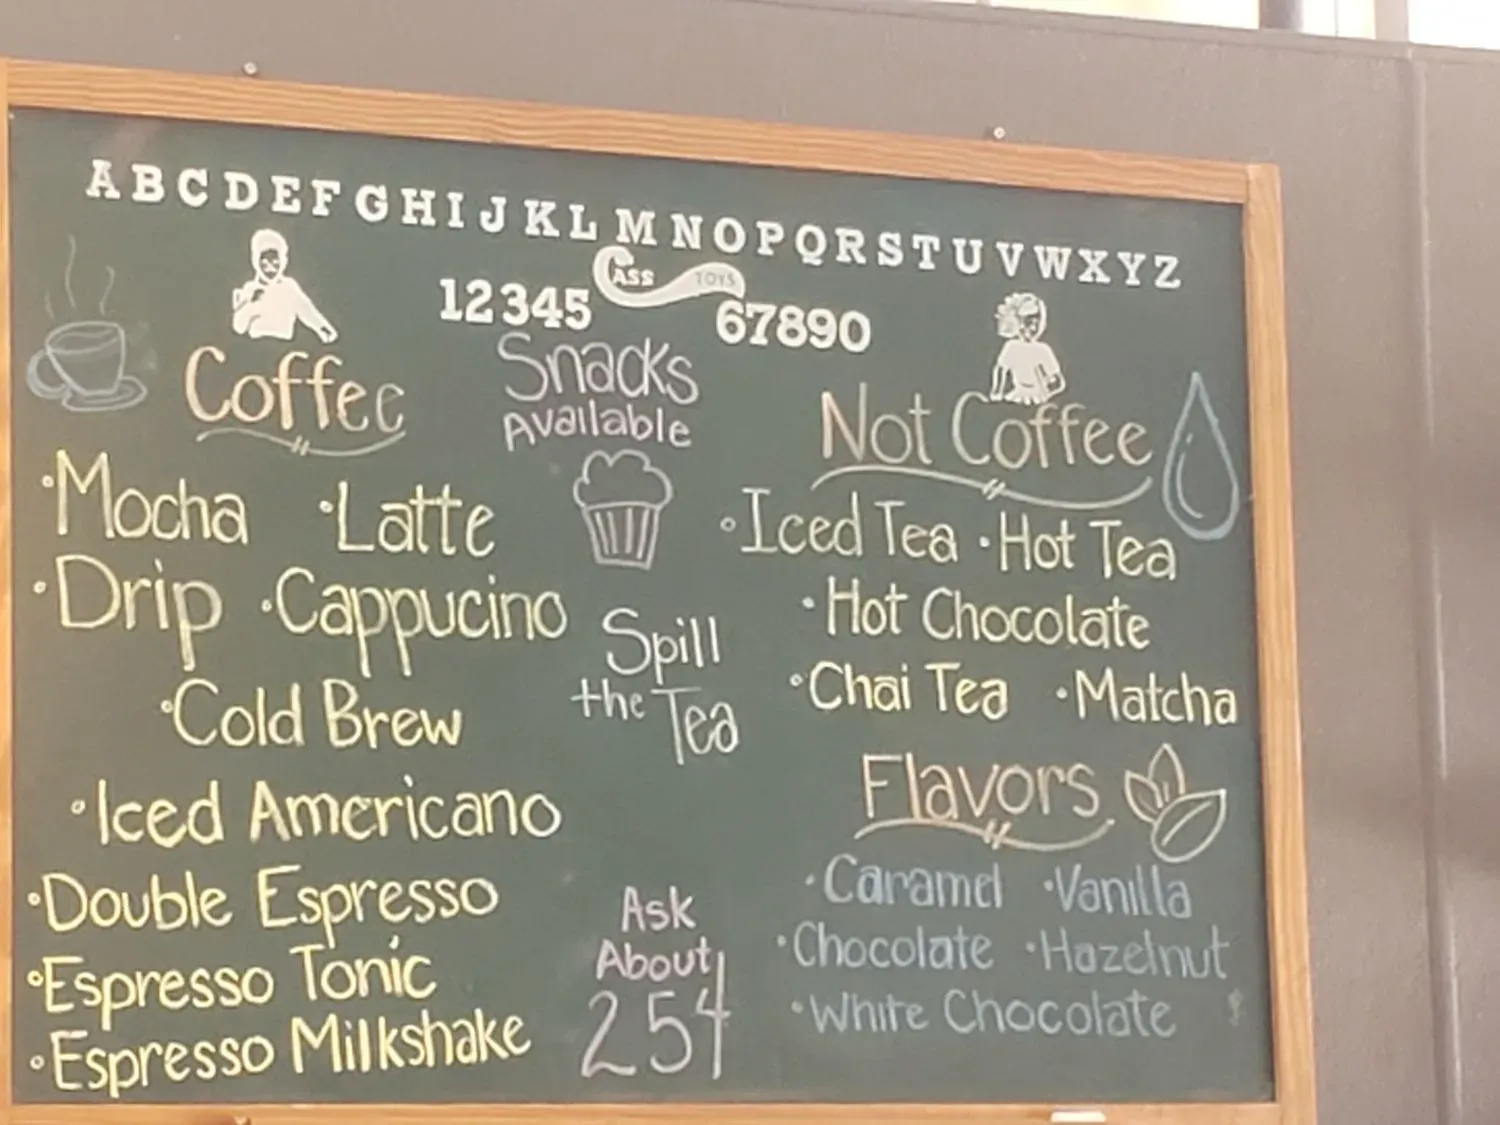 A B C D E F G H I J K L M N O P Q R S T U V W X Y Z
CASS TOYS
12345 67890
Coffee
• Mocha • Latte
• Drip • Cappucino
• Cold Brew
• Iced Americano
• Double Espresso
• Espresso Tonic
• Espresso Milkshake
Snacks
Available
Spill
the Tea
Ask
About
254
Not Coffee
• Iced Tea • Hot Tea
• Hot Chocolate
• Chai Tea • Matcha
Flavors
• Caramel • Vanilla
• Chocolate • Hazelnut
• White Chocolate